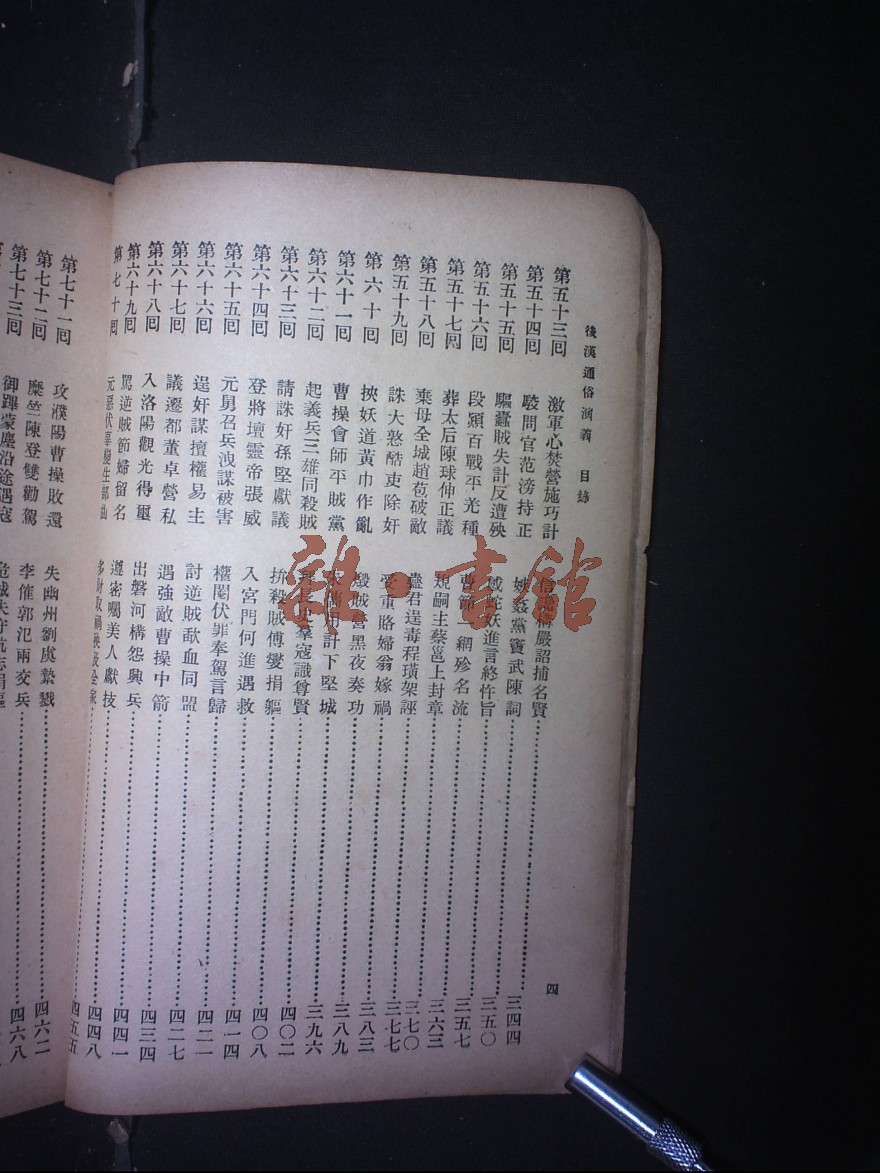 後漢通俗演義 目錄
四
第五十三回 激軍心焚營施巧計 嚴詔捕名賢 三四四
第五十四回 駁問官范滂持正 嫉姦黨竇武陳詞 三五〇
第五十五回 驅蠹賊失計反遭殃 妖進言終忤旨 三五七
第五十六回 段熲百戰平光種 曹節一網殄名流 三六三
第五十七回 葬太后陳球伸正議 規嗣主蔡邕上封章 三七〇
第五十八回 棄母全城趙苞破敵 蠱君逞毒程璜架誣 三七七
第五十九回 誅大憝酷吏除奸 受重賂婦翁嫁禍 三八三
第六十回 挾妖道黃巾作亂 燬賊營黑夜奏功 三八九
第六十一回 曹操會師平賊黨 用計下堅城 三九六
第六十二回 起義兵三雄同殺賊 拜長史羣寇識尊賢 四〇二
第六十三回 請誅奸孫堅獻議 拚殺賊傅燮捐軀 四〇八
第六十四回 登將壇靈帝張威 入宮門何進遇救 四一四
第六十五回 元舅召兵洩謀被害 權閹伏罪奉駕言歸 四二一
第六十六回 逞奸謀擅權易主 討逆賊歃血同盟 四二七
第六十七回 議遷都董卓營私 遇強敵曹操中箭 四三四
第六十八回 入洛陽觀光得璽 出磐河構怨興兵 四四一
第六十九回 罵逆賊節婦留名 遵密囑美人獻技 四四八
第七十回 元惡伏辜變生部曲 多財取禍殃及全家 四五五
第七十一回 攻濮陽曹操敗還 失幽州劉虞縶戮 四六二
第七十二回 糜竺陳登雙勸駕 李傕郭汜兩交兵 四六八
第七十三回 御蹕蒙塵沿途遇寇 危城失守抗志捐軀
雜·書館